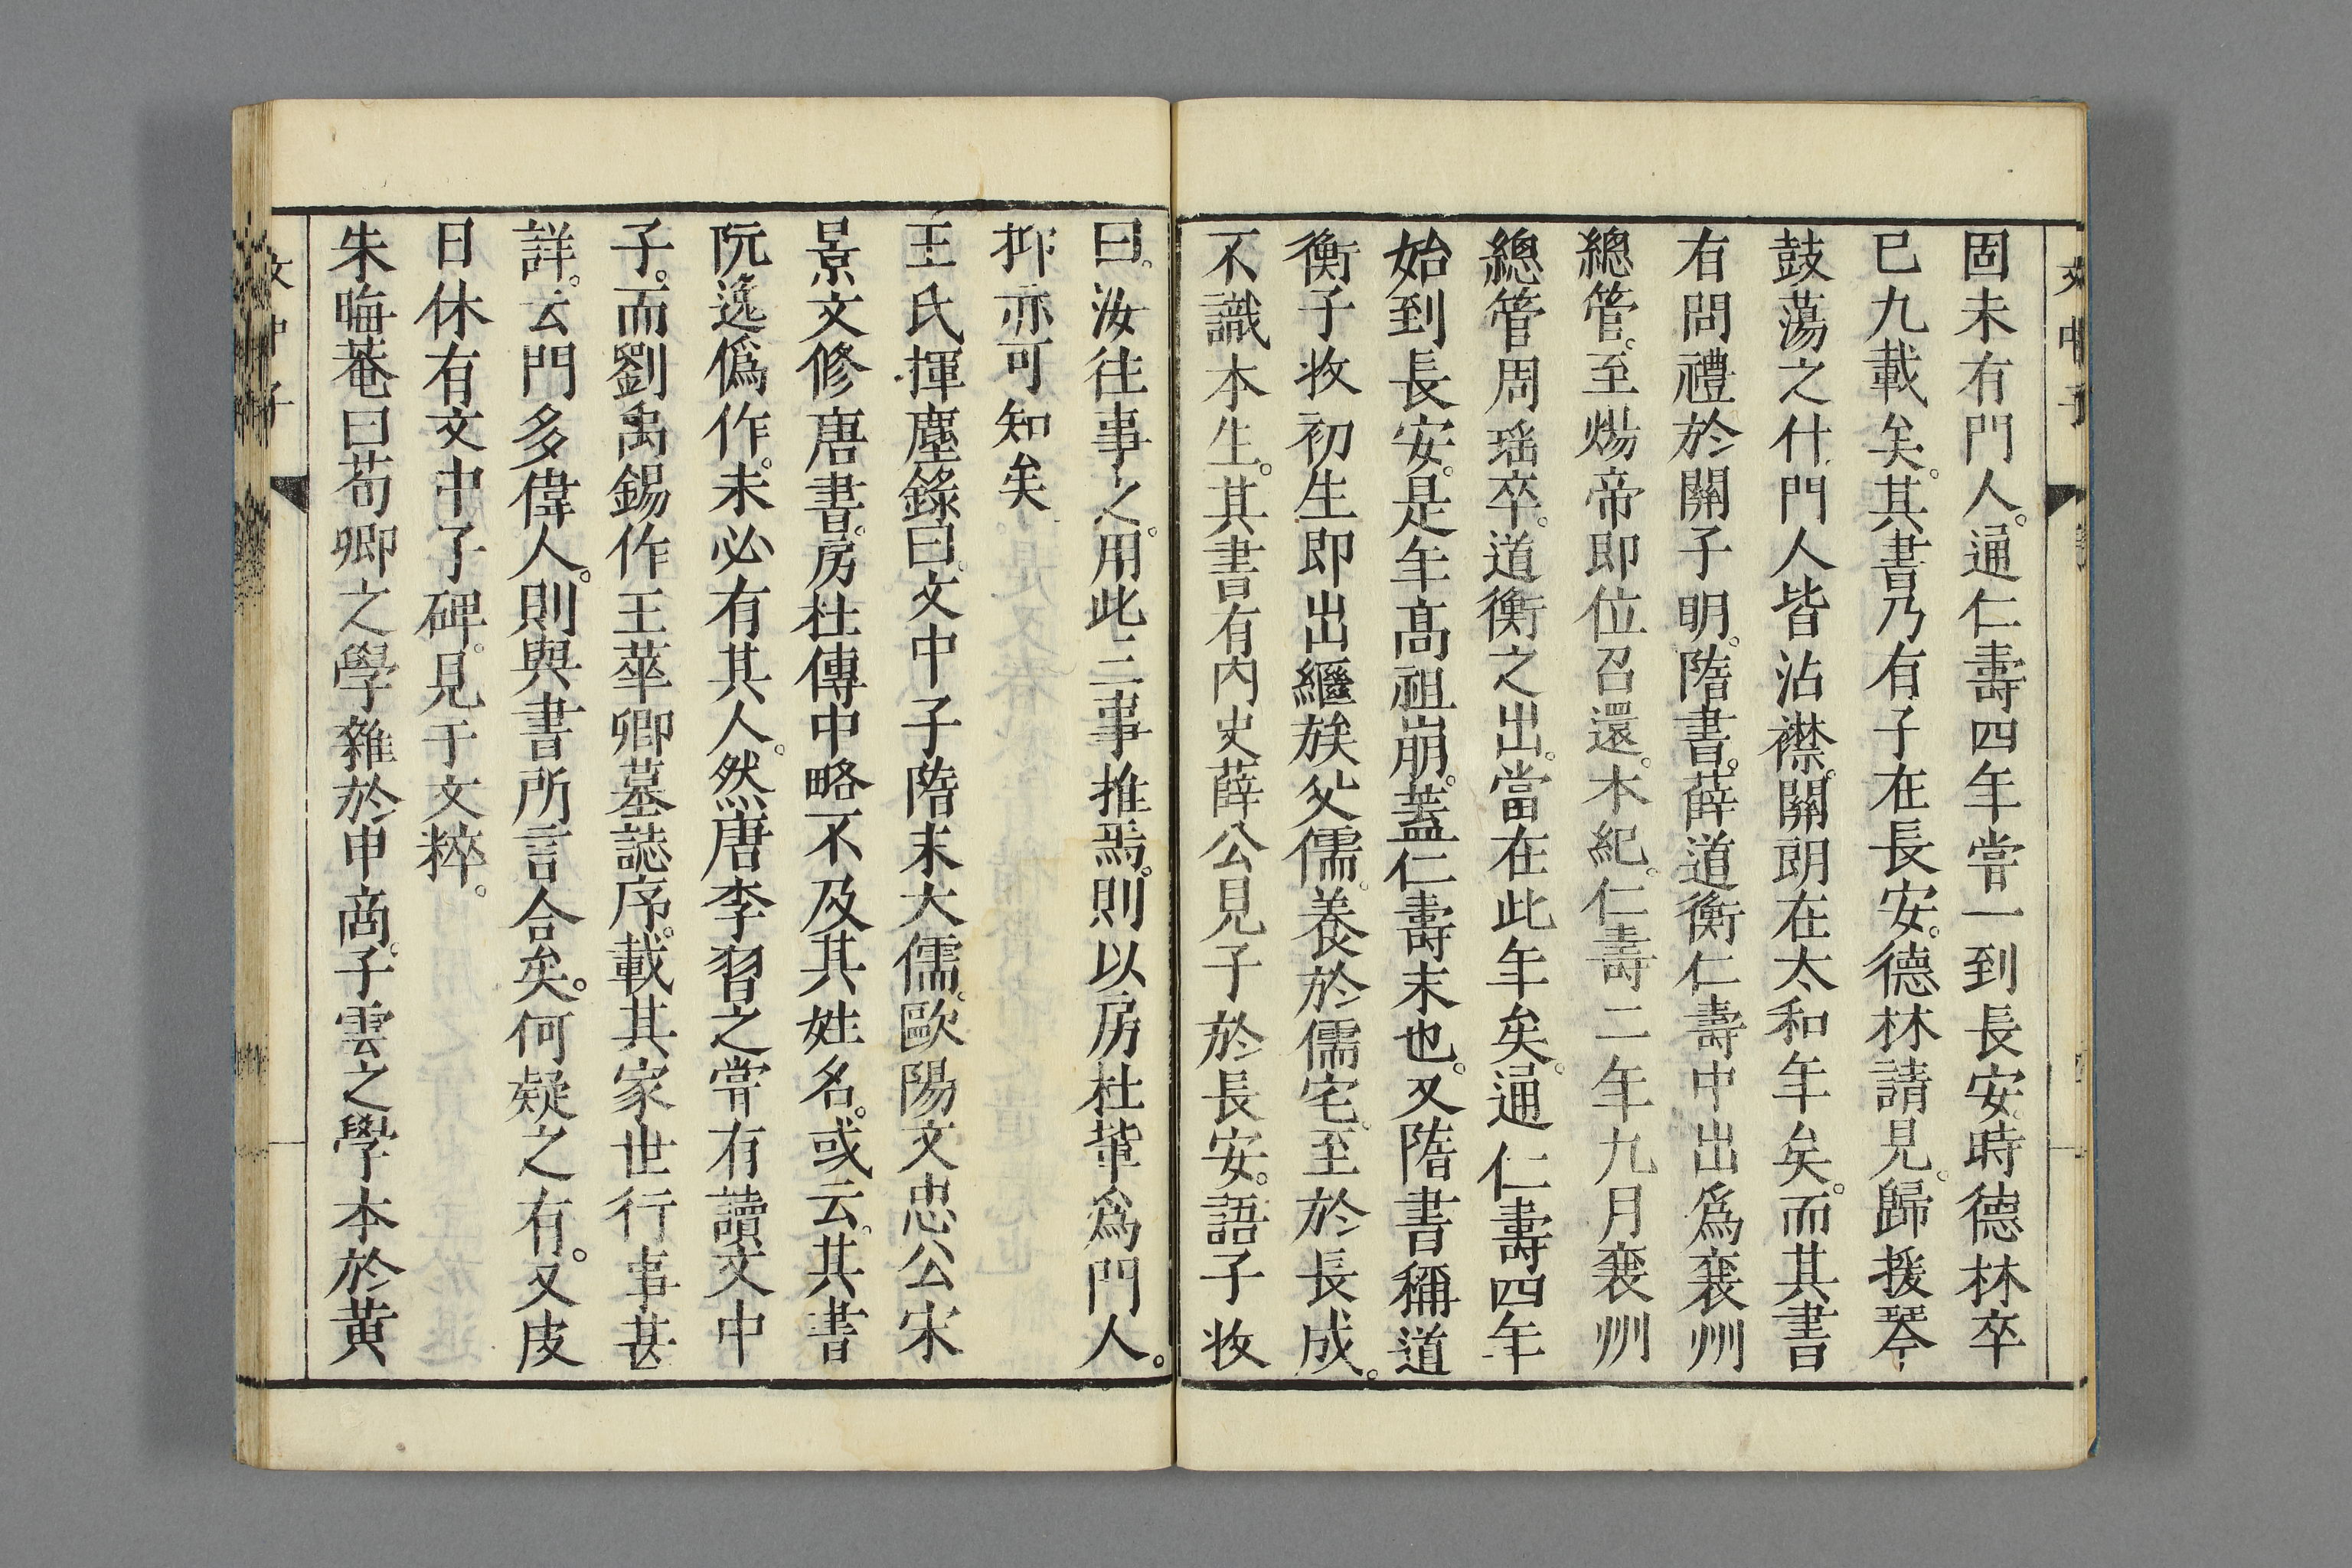 固未有門人。通仁壽四年嘗一到長安。時德林卒
已九載矣。其書乃有子在長安。德林請見。歸援琴
鼓蕩之什。門人皆沾襟。關朗在太和年矣。而其書
有問禮於關子明。隋書。薛道衡仁壽中出爲襄州
總管。至煬帝即位召還。本紀。仁壽二年九月襄州
總管周瑤卒。道衡之出。當在此年矣。通仁壽四年
始到長安。是年高祖崩。蓋仁壽末也。又隋書稱道
衡子收初生即出繼族父儒。養於儒宅。至於長成。
不識本生。其書有內史薛公見子於長安。語子收
曰。汝往事之。用此三事推焉。則以房杜輩爲門人。
抑亦可知矣
王氏揮麈錄曰。文中子隋末大儒。歐陽文忠公宋
景文修唐書。房杜傳中略不及其姓名。或云。其書
阮逸僞作。未必有其人。然唐李習之嘗有讀文中
子。而劉禹錫作王華卿墓誌序。載其家世行事甚
詳。云門多偉人。則與書所言合矣。何疑之有。又皮
日休有文中子碑。見于文粹。
朱晦菴曰荀卿之學雜於申商。子雲之學本於黃
文中子